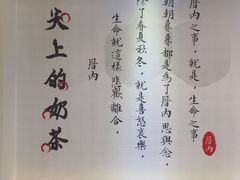 厝內之事，就是，生命之事
朝朝暮暮都是為了厝內思與念，
除了春夏秋冬，就是喜怒哀樂，
生命就這樣悲歡離合，
厝內
尖上的奶茶
厝內